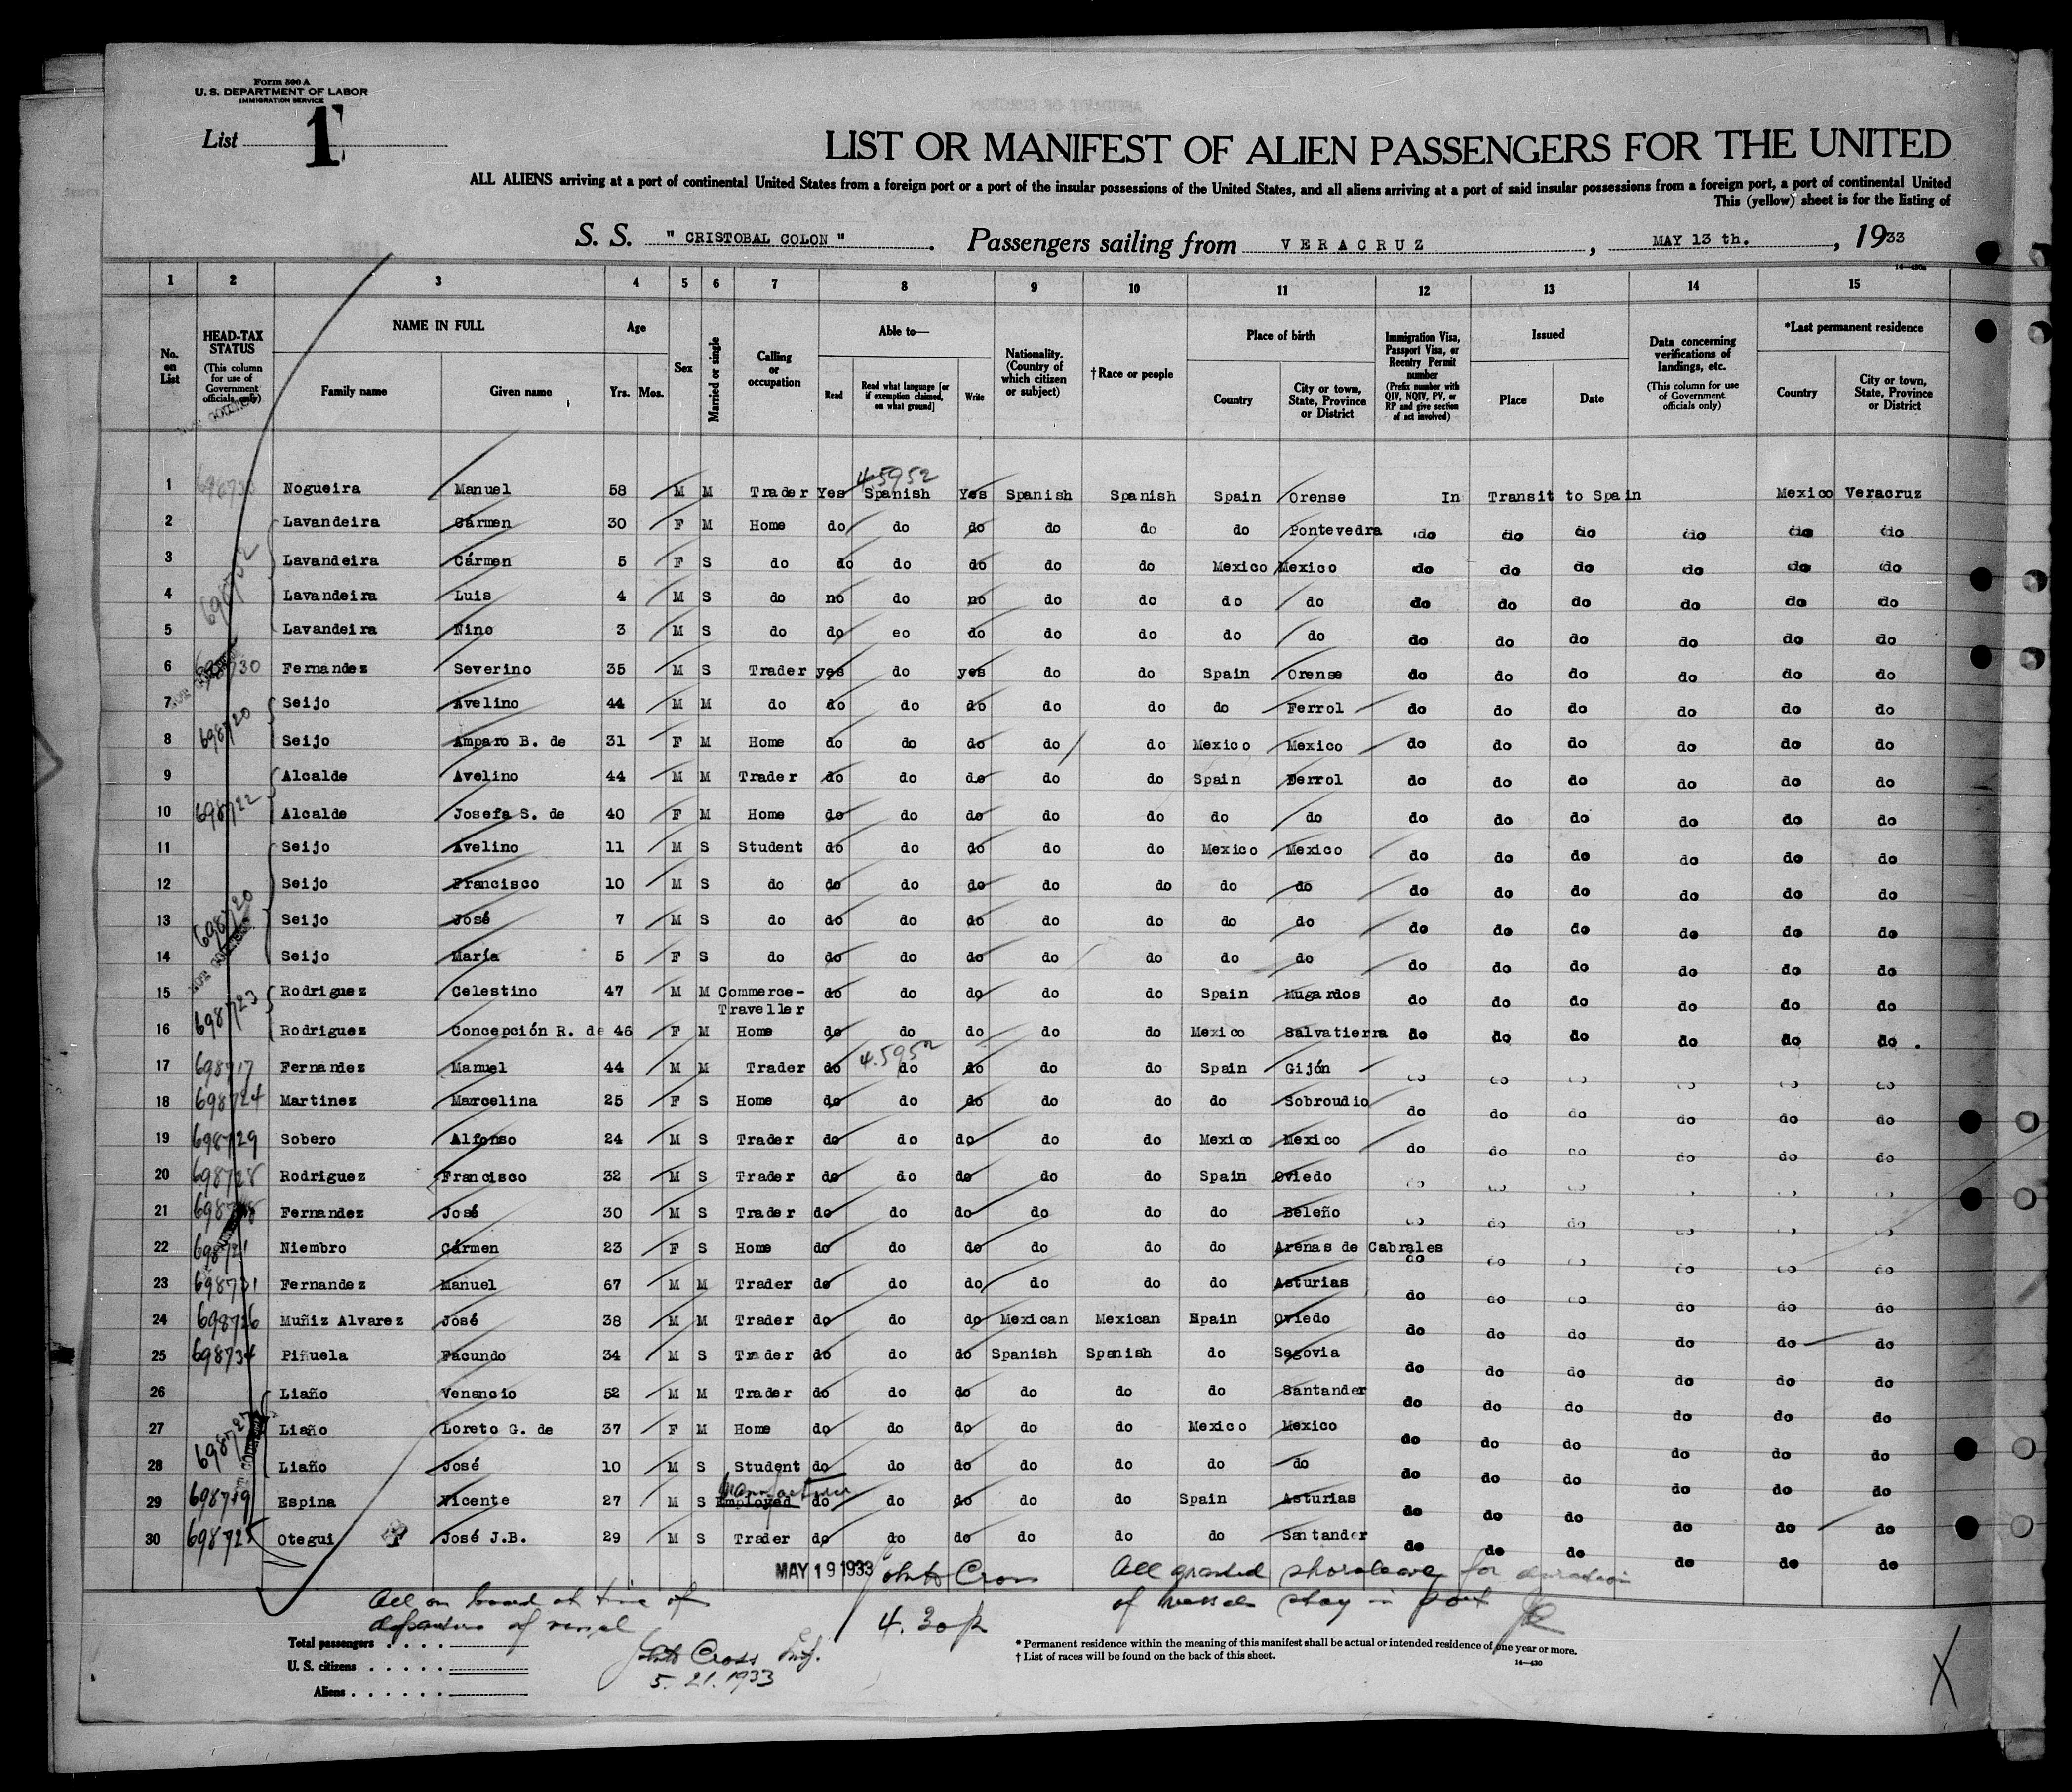 Form 500 A
U. S. DEPARTMENT OF LABOR
IMMIGRATION SERVICE
List 1
LIST OR MANIFEST OF ALIEN PASSENGERS FOR THE UNITED
ALL ALIENS arriving at a port of continental United States from a foreign port or a port of the insular possessions of the United States, and all aliens arriving at a port of said insular possessions from a foreign port, a port of continental United
This (yellow) sheet is for the listing of
S. S. " CRISTOBAL COLON " . Passengers sailing from VERACRUZ , MAY 13 th. , 1933
14—430a
1 2 3 4 5 6 7 8 9 10 11 12 13 14 15
No. on List
HEAD-TAX STATUS
(This column for use of Government officials only)
NAME IN FULL
Family name
Given name
Age
Yrs. Mos.
Sex
Married or single
Calling or occupation
Able to—
Read
Read what language [or if exemption claimed, on what ground]
Write
Nationality. (Country of which citizen or subject)
†Race or people
Place of birth
Country
City or town, State, Province or District
Immigration Visa, Passport Visa, or Reentry Permit number
(Prefix number with QIV, NQIV, PV, or RP and give section of act involved)
Issued
Place
Date
Data concerning verifications of landings, etc.
(This column for use of Government officials only)
*Last permanent residence
Country
City or town, State, Province or District
4.5952
1 Nogueira Manuel 58 M M Trader Yes Spanish Yes Spanish Spanish Spain Orense In Transit to Spain Mexico Veracruz
2 Lavandeira Cármen 30 F M Home do do do do do do Pontevedra do do do do do do
3 698732 Lavandeira Cármen 5 F S do do do do do do Mexico Mexico do do do do do do
4 Lavandeira Luis 4 M S do no do no do do do do do do do do do do
5 Lavandeira Nino 3 M S do do eo do do do do do do do do do do do
6 698730 Fernandez Severino 35 M S Trader yes do yes do do Spain Orense do do do do do do
7 Seijo Avelino 44 M M do do do do do do do Ferrol do do do do do do
8 698720 Seijo Amparo B. de 31 F M Home do do do do do Mexico Mexico do do do do do do
9 Alcalde Avelino 44 M M Trader do do do do do Spain Derrol do do do do do do
10 698722 Alcalde Josefa S. de 40 F M Home do do do do do do do do do do do do do
11 Seijo Avelino 11 M S Student do do do do do Mexico Mexico do do do do do do
12 Seijo Francisco 10 M S do do do do do do do do do do do do do do
13 698720 Seijo José 7 M S do do do do do do do do do do do do do do
14 Seijo María 5 F S do do do do do do do do do do do do do do
15 Rodriguez Celestino 47 M M Commerce- do do do do do Spain Mugardos do do do do do do
Traveller
16 698723 Rodriguez Concepción R. de 46 F M Home do do do do do Mexico Salvatierra do do do do do do .
4.5952
17 698717 Fernandez Manuel 44 M M Trader do do do do do Spain Gijón do do do do do do
18 698724 Martinez Marcelina 25 F S Home do do do do do do Sobroudio do do do do do do
19 698729 Sobero Alfonso 24 M S Trader do do do do do Mexico Mexico do do do do do do
20 698728 Rodriguez Francisco 32 M S Trader do do do do do Spain Oviedo
21 Fernandez José 30 M S Trader do do do do do do Beleño do do do do
22 698721 Niembro Cármen 23 F S Home do do do do do do Arenas de Cabrales do do do do do do
23 698731 Fernandez Manuel 67 M M Trader do do do do do do Asturias do do do do do do
24 698726 Muñiz Alvarez José 38 M M Trader do do do Mexican Mexican Spain Oviedo do do do do do do
25 698734 Piñuela Facundo 34 M S Trader do do do Spanish Spanish do Segovia do do do do do do
26 Liaño Venancio 52 M M Trader do do do do do do Santander do do do do do do
27 698727 Liaño Loreto G. de 37 F M Home do do do do do Mexico Mexico do do do do do do
28 Liaño José 10 M S Student do do do do do do do do do do do do do
29 698719 Espina Vicente 27 M S Employed do do do do do Spain Asturias do do do do do do
30 698725 Otegui José J.B. 29 M S Trader do do do do do do Santander do do do do do do
MAY 19 1933 Cross All granted shoreleave for duration
All on board at time of of vessels stay in port
departure of vessel 4.30p
Total passengers
U. S. citizens
Aliens
Cross Insp.
5. 21. 1933
* Permanent residence within the meaning of this manifest shall be actual or intended residence of one year or more.
† List of races will be found on the back of this sheet.
14—430
X